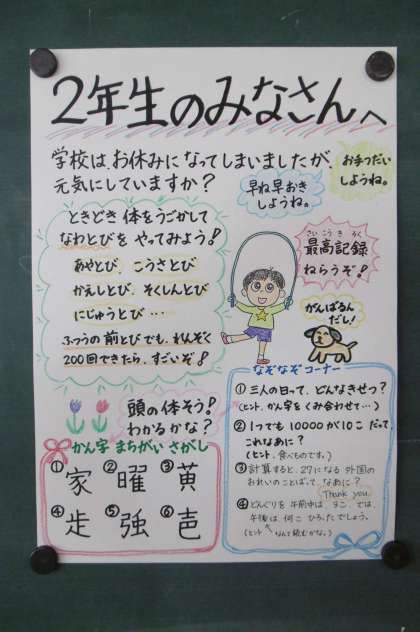 ２年生のみなさんへ
学校は、お休みになってしまいましたが、
元気にしていますか？
お手つだい
しようね。
早ね早おき
しようね。
ときどき体をうごかして
なわとびを やってみよう！
あやとび、こうさとび
かえしとび、そくしんとび
にじゅうとび…
ふつうの前とびでも、れんぞく
200回できたら、すごいぞ！
さいこうきろく
最高記録
ねらうぞ！
がんばるん
だし！
頭の体そう！
わかるかな？
かん字 まちがい さがし
① 家 ② 曜 ③ 黄
④ ⑤ 強 ⑥
なぞなぞコーナー
① 三人の日って、どんなきせつ？
(ヒント、かん字をくみ合わせて…)
② 1つでも10000が10こ だって、
これなあに？
(ヒント、食べものです。)
③ 計算すると、27になる 外国の
おれいのことばって、なあに？
Thank you.
④ どんぐりを 午前中は、3こ、では、
午後は、何こ ひろったでしょう。
(ヒント なんて読むかな。)